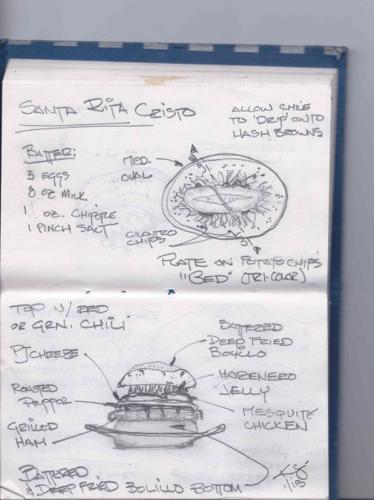 SANTA RITA CRISTO
ALLOW CHILE
TO "DRIP" ONTO
HASH BROWNS
BATTER:
3 EGGS
8 OZ MILK
1 OZ. CHIPOTLE
1 PINCH SALT
MED.
OVAL
CILANTRO
CHIPS
PLATE ON POTATO CHIPS
"BED" (TRI-COLOR)
TOP W/ RED
OR GRN. CHILI
PJ CHEESE
ROASTED
PEPPER
GRILLED
HAM
BATTERED
DEEP FRIED
BOLILLO
HABENERO
JELLY
MESQUITE
CHICKEN
BATTERED
& DEEP FRIED BOLILLO BOTTOM